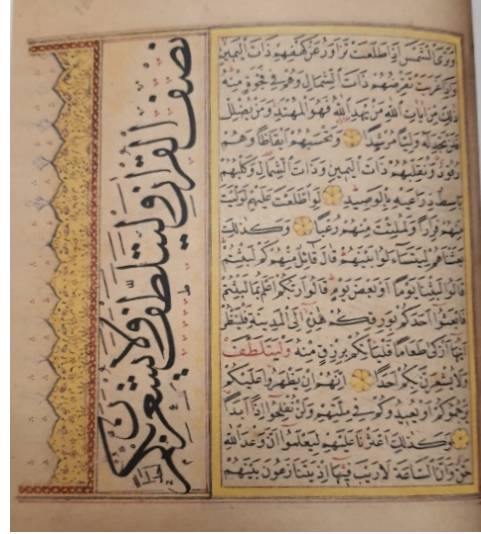 وَتَرَى الشَّمْسَ اِذَا طَلَعَتْ تَزَاوَرُ عَنْ كَهْفِهِمْ ذَاتَ الْيَمِينِ
وَاِذَا غَرَبَتْ تَقْرِضُهُمْ ذَاتَ الشِّمَالِ وَهُمْ فِي فَجْوَةٍ مِنْهُ
ذٰلِكَ مِنْ اٰيَاتِ اللّٰهِ مَنْ يَهْدِ اللّٰهُ فَهُوَ الْمُهْتَدِ وَمَنْ يُضْلِلْ
فَلَنْ تَجِدَ لَهُ وَلِيًّا مُرْشِدًا وَتَحْسَبُهُمْ اَيْقَاظًا وَهُمْ
رُقُودٌ وَنُقَلِّبُهُمْ ذَاتَ الْيَمِينِ وَذَاتَ الشِّمَالِ وَكَلْبُهُمْ
بَاسِطٌ ذِرَاعَيْهِ بِالْوَصِيدِ لَوِ اطَّلَعْتَ عَلَيْهِمْ لَوَلَّيْتَ
مِنْهُمْ فِرَارًا وَلَمُلِئْتَ مِنْهُمْ رُعْبًا وَكَذٰلِكَ
بَعَثْنَاهُمْ لِيَتَسَاءَلُوا بَيْنَهُمْ قَالَ قَائِلٌ مِنْهُمْ كَمْ لَبِثْتُمْ
قَالُوا لَبِثْنَا يَوْمًا اَوْ بَعْضَ يَوْمٍ قَالُوا رَبُّكُمْ اَعْلَمُ بِمَا لَبِثْتُمْ
فَابْعَثُوا اَحَدَكُمْ بِوَرِقِكُمْ هٰذِهِ اِلَى الْمَدِينَةِ فَلْيَنْظُرْ
اَيُّهَا اَزْكٰى طَعَامًا فَلْيَاْتِكُمْ بِرِزْقٍ مِنْهُ وَلْيَتَلَطَّفْ
وَلَا يُشْعِرَنَّ بِكُمْ اَحَدًا اِنَّهُمْ اِنْ يَظْهَرُوا عَلَيْكُمْ
يَرْجُمُوكُمْ اَوْ يُعِيدُوكُمْ فِي مِلَّتِهِمْ وَلَنْ تُفْلِحُوا اِذًا اَبَدًا
وَكَذٰلِكَ اَعْثَرْنَا عَلَيْهِمْ لِيَعْلَمُوا اَنَّ وَعْدَ اللّٰهِ
حَقٌّ وَاَنَّ السَّاعَةَ لَا رَيْبَ فِيهَا اِذْ يَتَنَازَعُونَ بَيْنَهُمْ
نصف القران وليتلطف ولا يشعرن بكم احدا